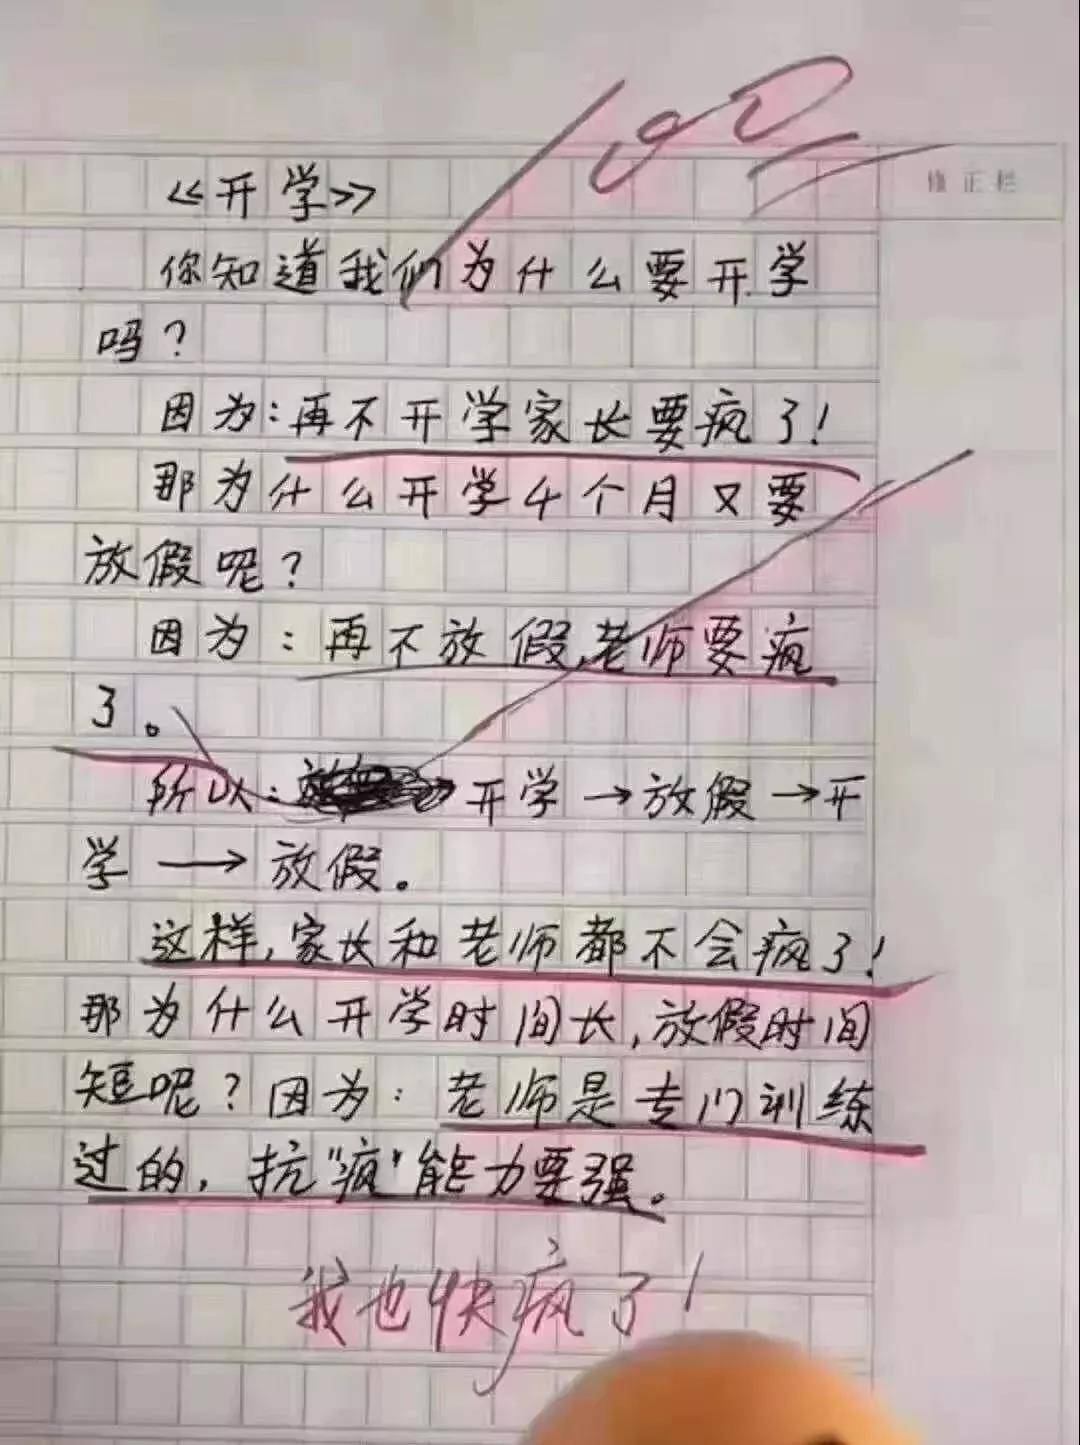 100
修正栏
《开学》
你知道我们为什么要开学
吗?
因为:再不开学家长要疯了!
那为什么开学4个月又要
放假呢?
因为:再不放假,老师要疯
了。
所以:开学→放假→开
学→放假。
这样,家长和老师都不会疯了!
那为什么开学时间长,放假时间
短呢?因为:老师是专门训练
过的,抗"疯"能力要强。
我也快疯了!